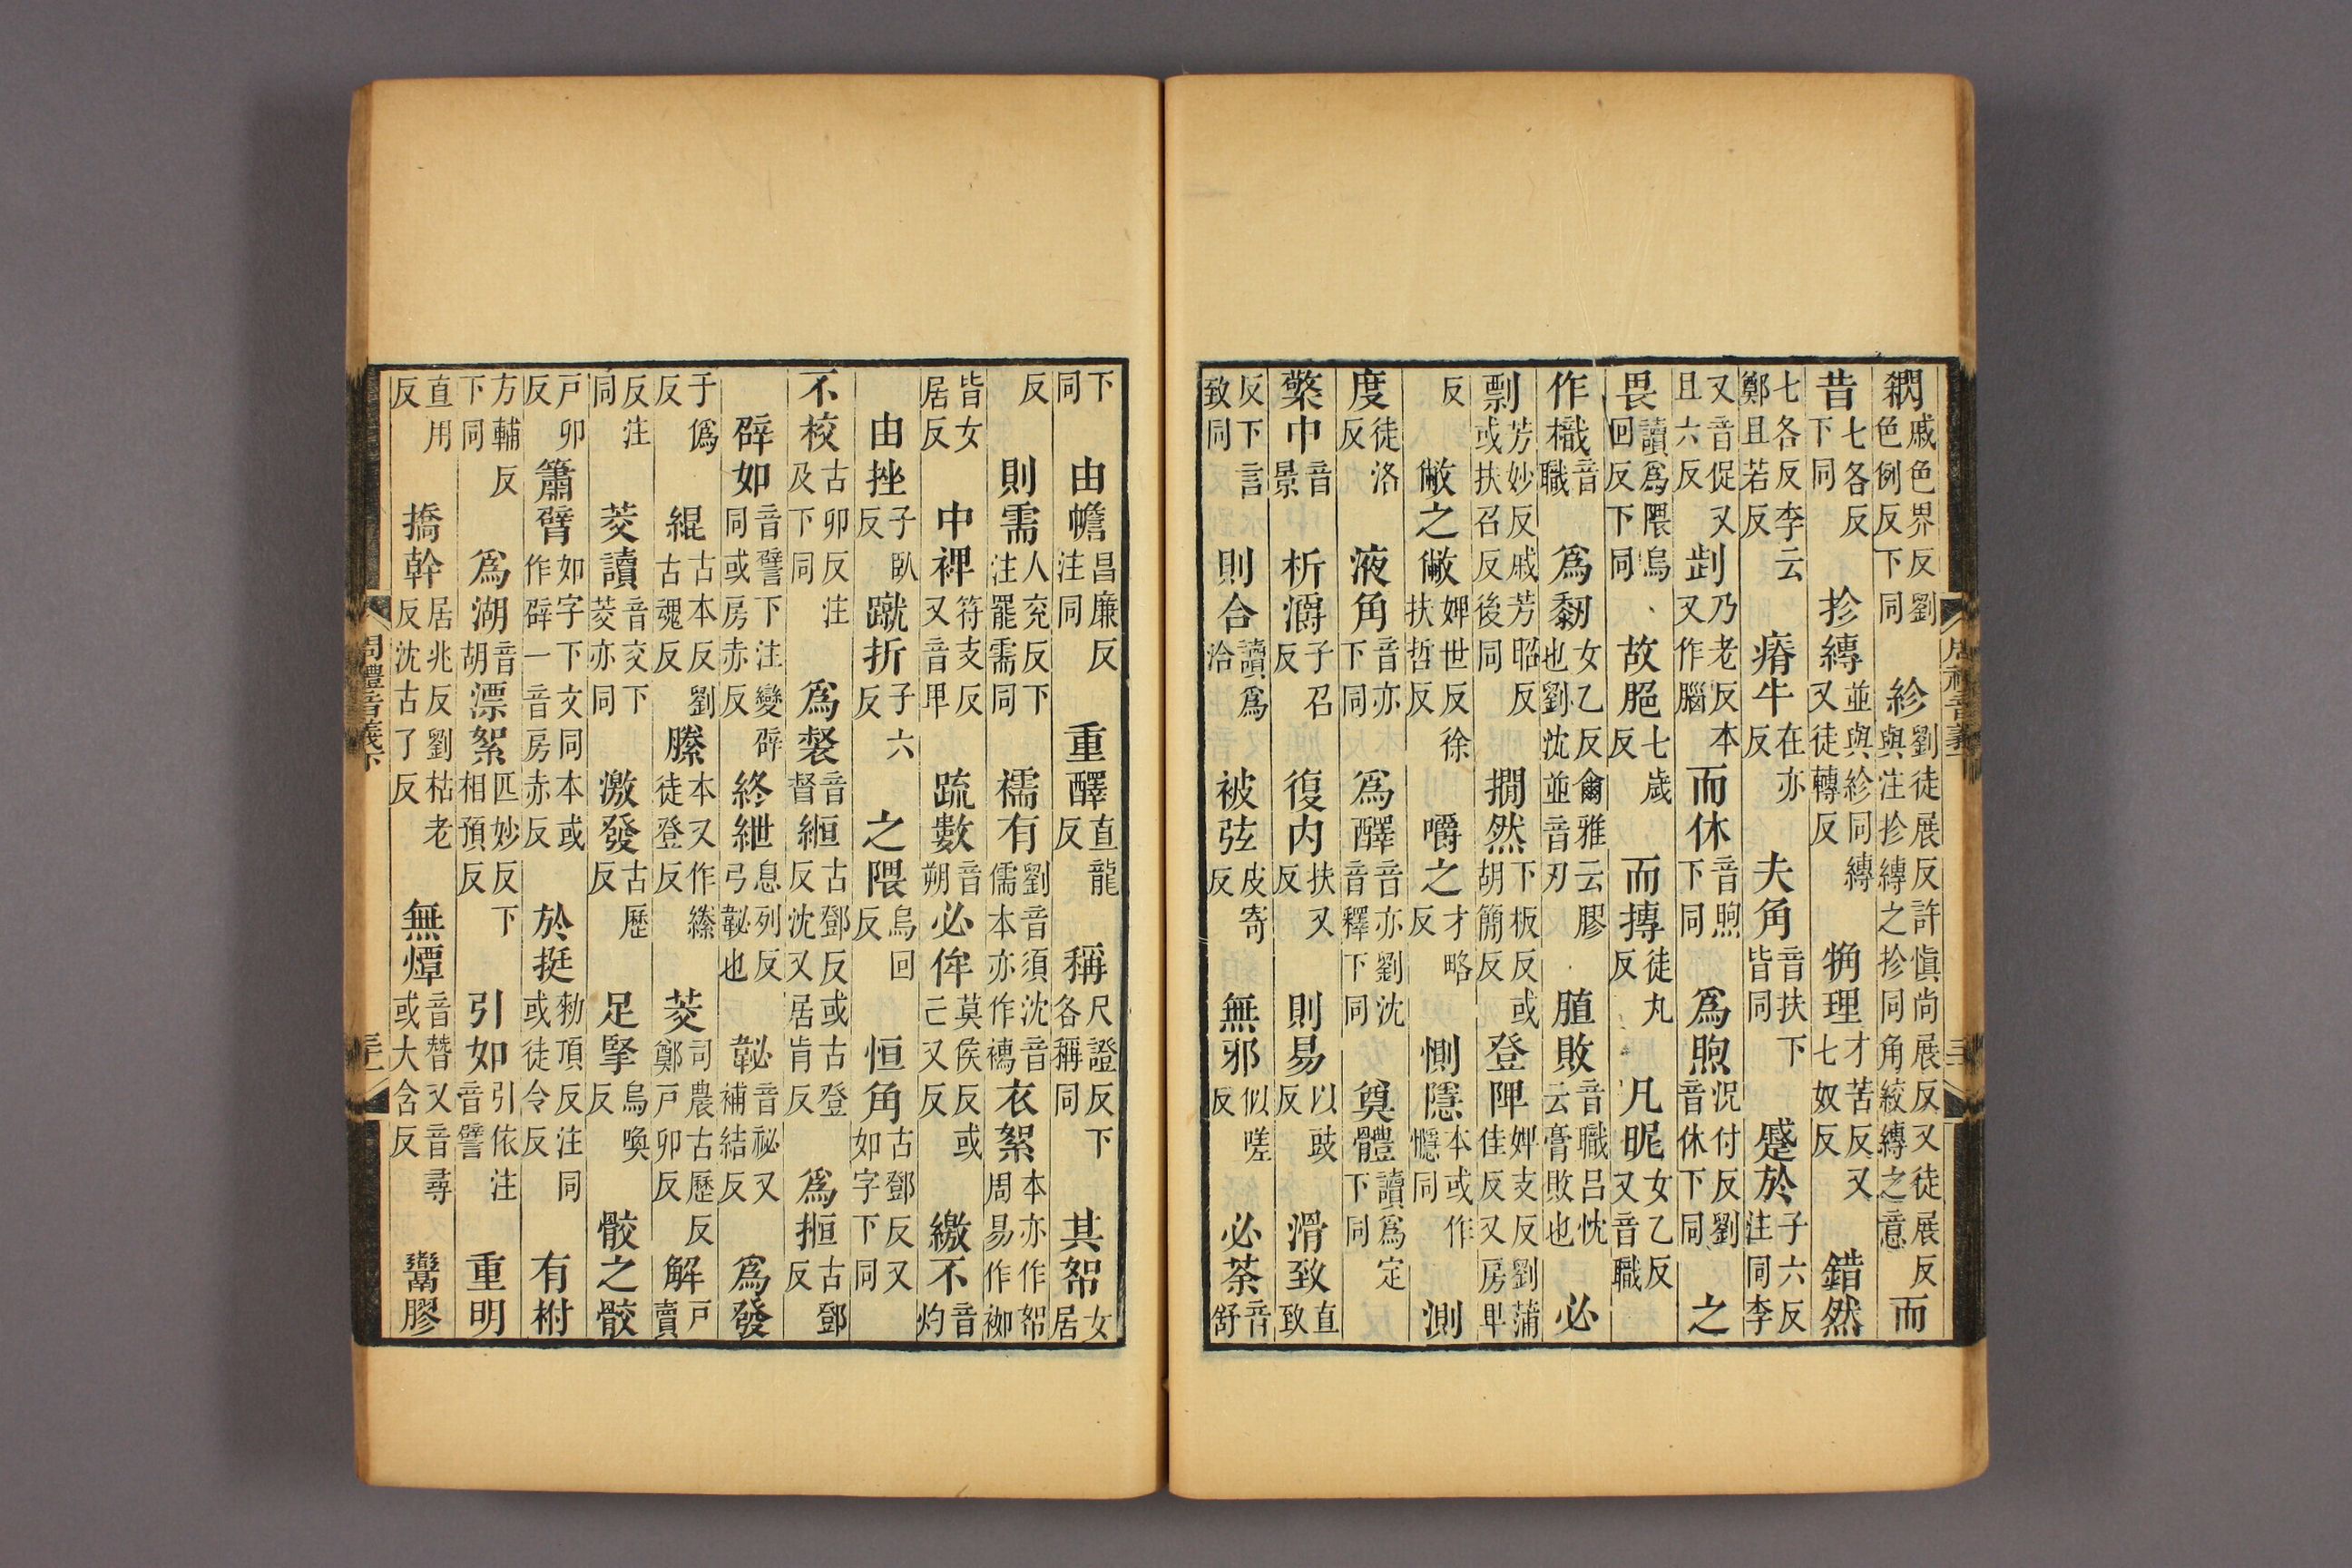 周禮音義
閷戚色界反劉色例反下同 紾劉徒展反許慎尚展反又徒展反與注抮縳之抮同角絞縳之意 而
昔七各反下同 抮縳並與紾同縳又徒轉反 觕理才苦反又七奴反 錯然
七各反李云鄭且若反 瘠牛在亦反 夫角音扶下皆同 蹙於子六反注同李
又音促又且六反 乃老反本又作腦 而休音煦下同 為煦況付反劉音休下同 之
畏讀為隈烏回反下同 故脃七歲反 而摶徒丸反 凡昵女乙反又音職
作樴音職 為䵒女乙反爾雅云膠也劉沈並音刃 䐈敗音職呂忱云膏敗也 必
剽芳妙反戚芳昭反或扶召反後同 撊然下板反或胡簡反 登陴婢支反劉蒲佳反又房卑
反 敝之敝婢世反徐扶哲反 嚼之才略反 惻隱本或作㥯同 測
度徒洛反 液角音亦下同 為醳音亦劉沈音釋下同 奠體讀為定下同
檠中音景 析灂子召反 復內扶又反 則易以豉反 滑致直致
反下言致同 則合讀為洽 被弦皮寄反 無邪似嗟反 必荼音舒
下同 由幨昌廉反注同 重醳直龍反 稱尺證反下各稱同 其帤女居
反 則需人兖反下注罷需同 襦有劉音須沈音儒本亦作襦 衣絮本亦作帤周易作袽
皆女居反 中裨符支反又音卑 疏數音朔 必侔莫侯反或亡又反 繳不音灼
由挫子臥反 蹴折子六反 之隈烏回反 恒角古鄧反又如字下同
不校古卯反注及下同 為裻音督 緪古鄧反或古登反沈又居肯反 為揯古鄧反
辟如音譬下注變辟同或房赤反 終紲息列反弓䪐也 䪐音祕又補結反 為發
于偽反 緄古本反劉古魂反 縢本又作縢徒登反 茭司農古歷反鄭戶卯反 解戶賣
反注同 茭讀音交下茭亦同 激發古歷反 足掔烏喚反 骹之骹
戶卯反 簫臂如字下文同本或作辟一音房赤反 於挺勑頂反注同或徒令反 有柎
方輔反下同 為湖音胡 漂絮匹妙反下相預反 引如引依注音譬 重明
直用反 撟幹居兆反劉枯老反沈古了反 無燂音朁又音尋或大含反 鬻膠
周禮音義下